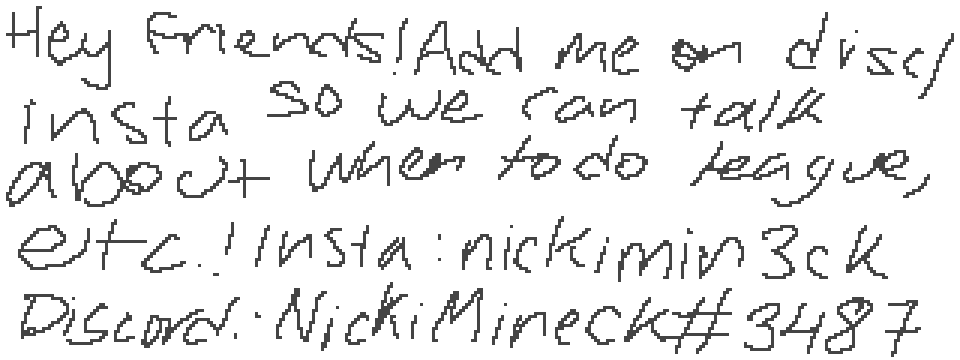 Hey Friends! Add me on disc/
insta so we can talk
about when to do league,
etc.! Insta: nickimin3ck
Discord: NickiMineck#3487